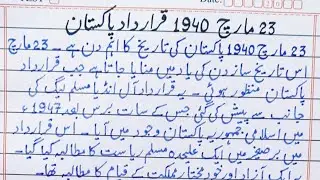 Date:
23 مارچ 1940 قرارداد پاکستان
23 مارچ 1940 پاکستان کی تاریخ کا اہم دن ہے۔ 23 مارچ
اس تاریخ ساز دن کی یاد میں منایا جاتا ہے جب قرارداد
پاکستان منظور ہوئی۔ یہ قرارداد آل انڈیا مسلم لیگ کی
جانب سے پیش کی گئی جس کے سات برس بعد 1947ء
میں اسلامی جمہوریہ پاکستان وجود میں آیا۔ اس قرارداد
میں برصغیر میں ایک علیحدہ مسلم ریاست کا مطالبہ کیا گیا۔
ایک آزاد اور خودمختار مملکت کے قیام کا مطالبہ تھا۔